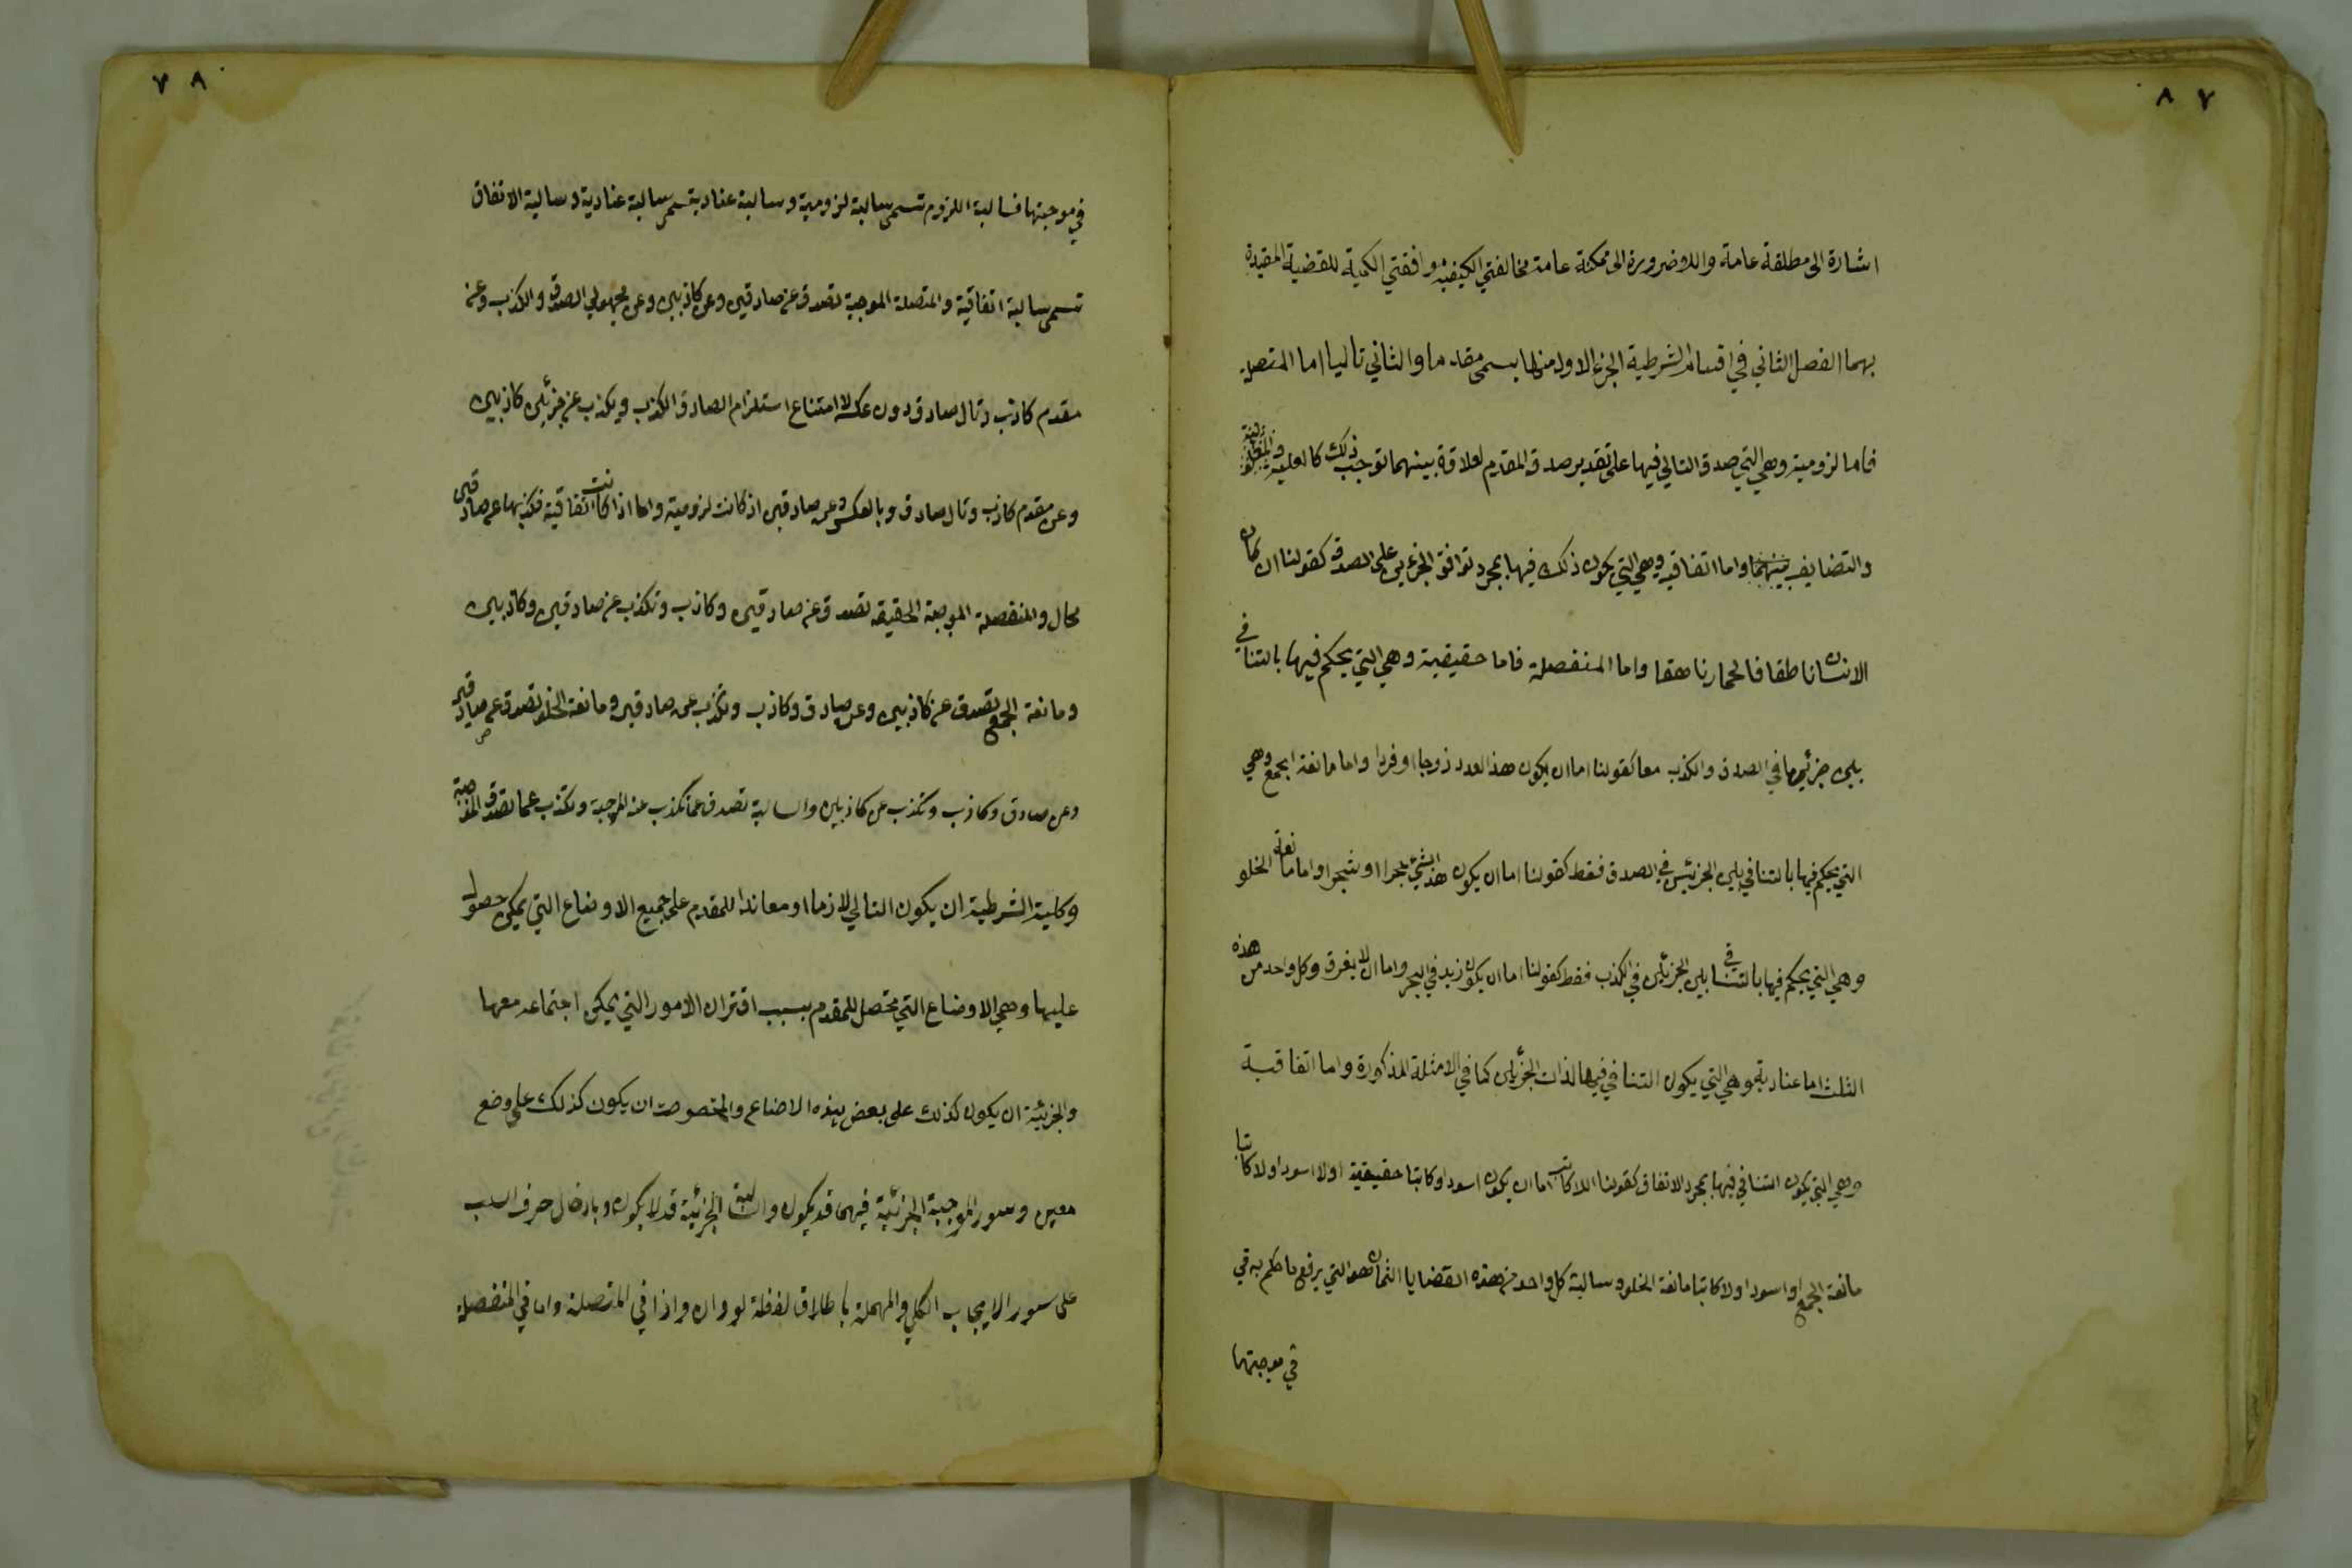 ٨٧
اشارة الى مطلقة عامة واللاضرورة الى ممكنة عامة مخالفتي الكيفية وافقتي الكمية للقضية المقيدة
بهما الفصل الثاني في اقسام الشرطية الجزء الاول منها يسمى مقدما والثاني تاليا اما المتصلة
فاما لزومية وهي التي صدق التالي فيها على تقدير صدق المقدم لعلاقة بينهما توجب ذلك كالعلية
والتضايف بينهما واما اتفاقية وهي التي يكون ذلك فيها بمجرد توافق الجزءين على الصدق كقولنا ان كان
الانسان ناطقا فالحمار ناهقا واما المنفصلة فاما حقيقية وهي التي يحكم فيها بالتنافي
بين جزئيها في الصدق والكذب معا كقولنا اما ان يكون هذا العدد زوجا او فردا واما مانعة الجمع وهي
التي يحكم فيها بالتنافي بين الجزئين في الصدق فقط كقولنا اما ان يكون هذا الشئ حجرا او شجرا واما مانعة الخلو
وهي التي يحكم فيها بالتنافي بين الجزئين في الكذب فقط كقولنا اما ان يكون زيد في البحر واما ان لا يغرق وكل واحد من هذه
الثلث اما عنادية وهي التي يكون التنافي فيها لذات الجزئين كما في الامثلة المذكورة واما اتفاقية
وهي التي يكون التنافي فيها بمجرد الاتفاق كقولنا اللاكاتب اما ان يكون اسود او كاتبا حقيقية او لا اسود او لا كاتبا
مانعة الجمع او اسود او لا كاتبا مانعة الخلو وسالبة كل واحد من هذه القضايا الثمان هو التي يرفع ما حكم به في
في موجبتها
٧٨
في موجبتها فسالبة اللزوم تسمى سالبة لزومية وسالبة عنادية تسمى سالبة عنادية وسالبة الاتفاق
تسمى سالبة اتفاقية والمتصلة الموجبة تصدق عن صادقين وعن كاذبين وعن مجهولي الصدق والكذب وعن
مقدم كاذب وتال صادق دون عكسه لامتناع استلزام الصادق الكذب ويكذب عن جزئين كاذبين
وعن مقدم كاذب وتال صادق وبالعكس وعن صادقين اذ كانت لزومية واما اذا كانت اتفاقية فكذبها عن صادقين
محال والمنفصلة الموجبة الحقيقة تصدق عن صادقين وكاذب وتكذب عن صادقين وكاذبين
ومانعة الجمع تصدق عن كاذبين وعن صادق وكاذب وتكذب عن صادقين ومانعة الخلو تصدق عن صادقين
وعن صادق وكاذب وتكذب عن كاذبين والسالبة تصدق عما تكذب عنه الموجبة وتكذب عما تصدق الموجبة
وكلية الشرطية ان يكون التالي لازما او معاندا للمقدم على جميع الاوضاع التي يمكن حصوله
عليها وهي الاوضاع التي تحصل للمقدم بسبب اقتران الامور التي يمكن اجتماعه معها
والجزئية ان يكون كذلك على بعض هذه الاضاع والمخصوصة ان يكون كذلك على وضع
معين وسور الموجبة الجزئية فيهما قد يكون والسالبة الجزئية قد لا يكون وبادخال حرف السلب
على سور الايجاب الكلي والمهملة باطلاق لفظة لو وان واذا في المتصلة واما في المنفصلة